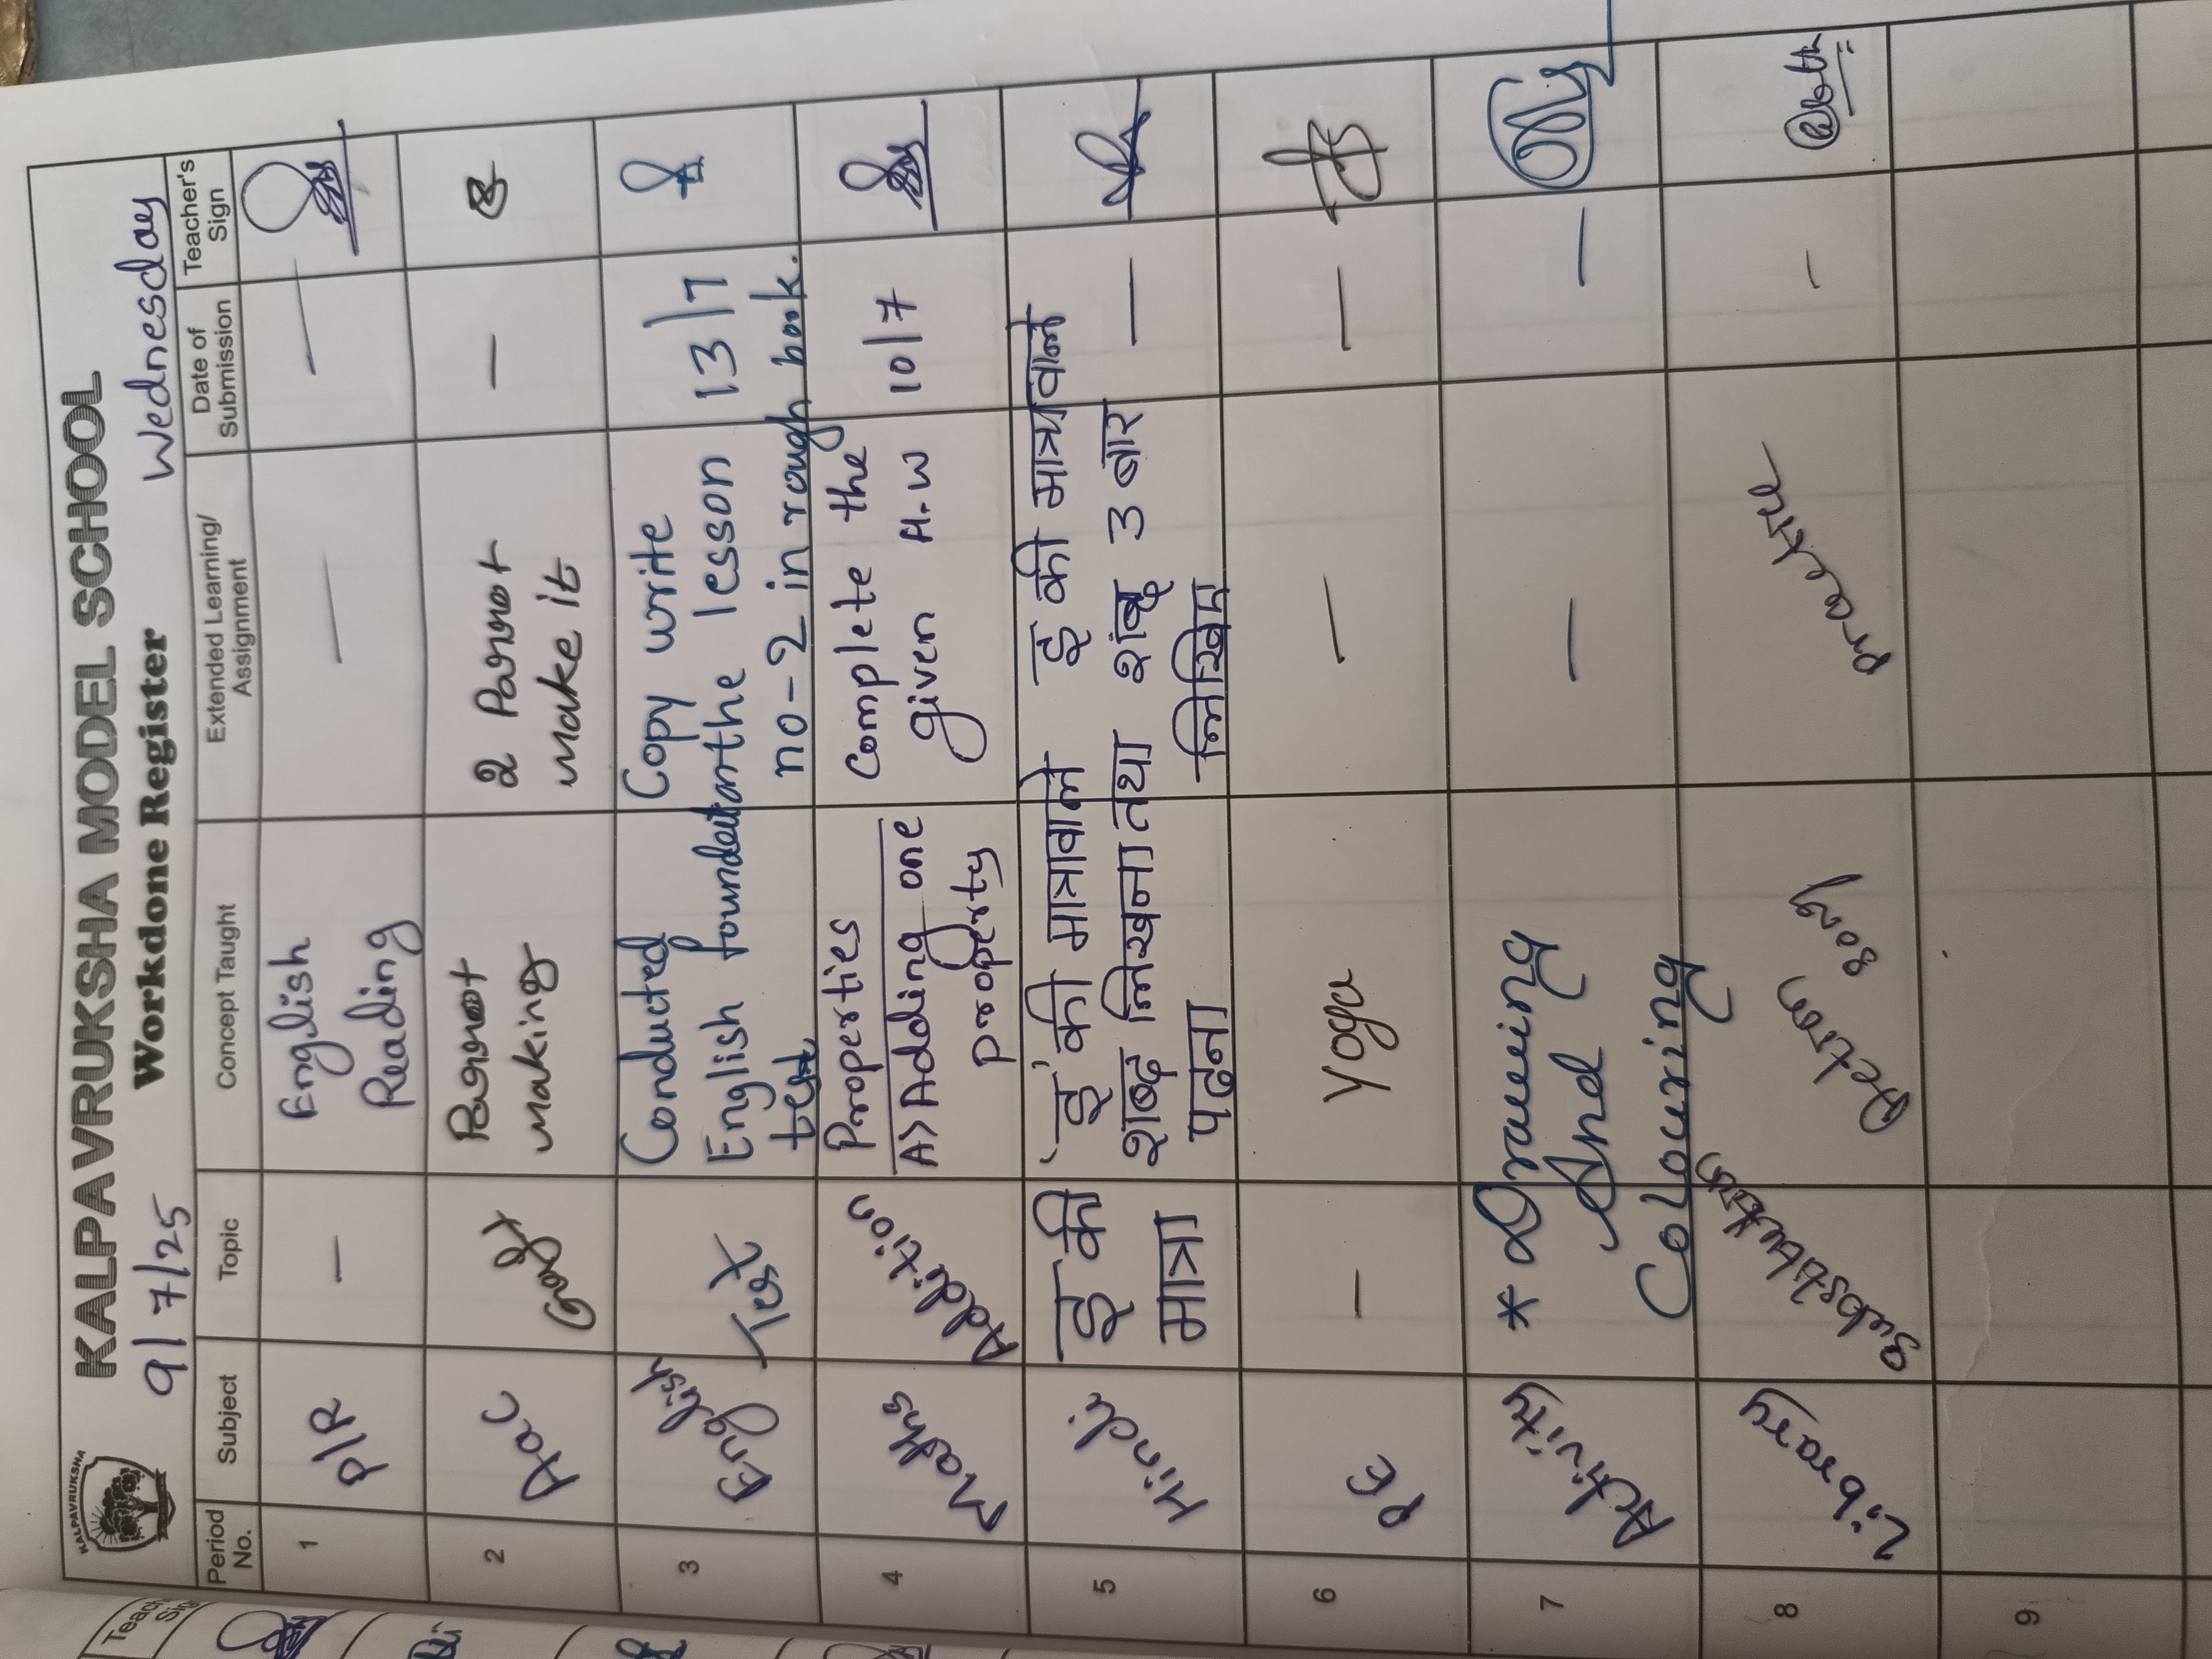 KALPAVRUKSHA
KALPAVRUKSHA MODEL SCHOOL
Workdone Register
9/7/25
Wednesday
Period No.
Subject
Topic
Concept Taught
Extended Learning/ Assignment
Date of Submission
Teacher's Sign
1
P/R
—
English
Reading
—
—
2
Aac
Craft
Parrot
making
2 Parrot
make it
—
3
English
Test
Conducted
English foundation
test
Copy write
the lesson
no-2 in rough book.
13/7
4
Maths
Addition
Properties
A> Adding one
property
Complete the
given H.W
10/7
5
Hindi
इु की
मात्रा
'इु' की मात्रावाले
शब्द लिखना तथा
पढना
इु की मात्रावाले
शब्द 3 बार
लिखिए
—
6
PE
—
Yoga
—
—
7
Activity
* Drawing
And
Colouring
—
—
8
Library
substitution
Action song
practice
—
9